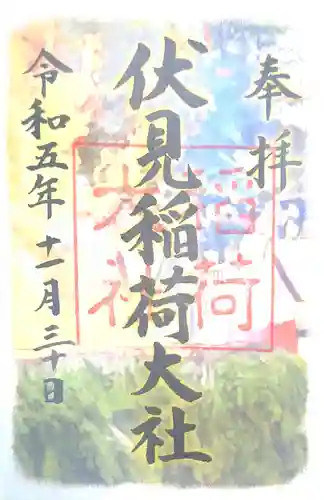 奉拝
伏見稲荷大社
令和五年十一月三十日
稲荷
大社